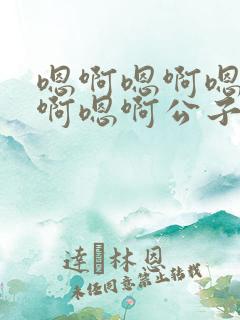 嗯啊嗯啊嗯
啊嗯啊公子
達林恩
未经同意禁止转载